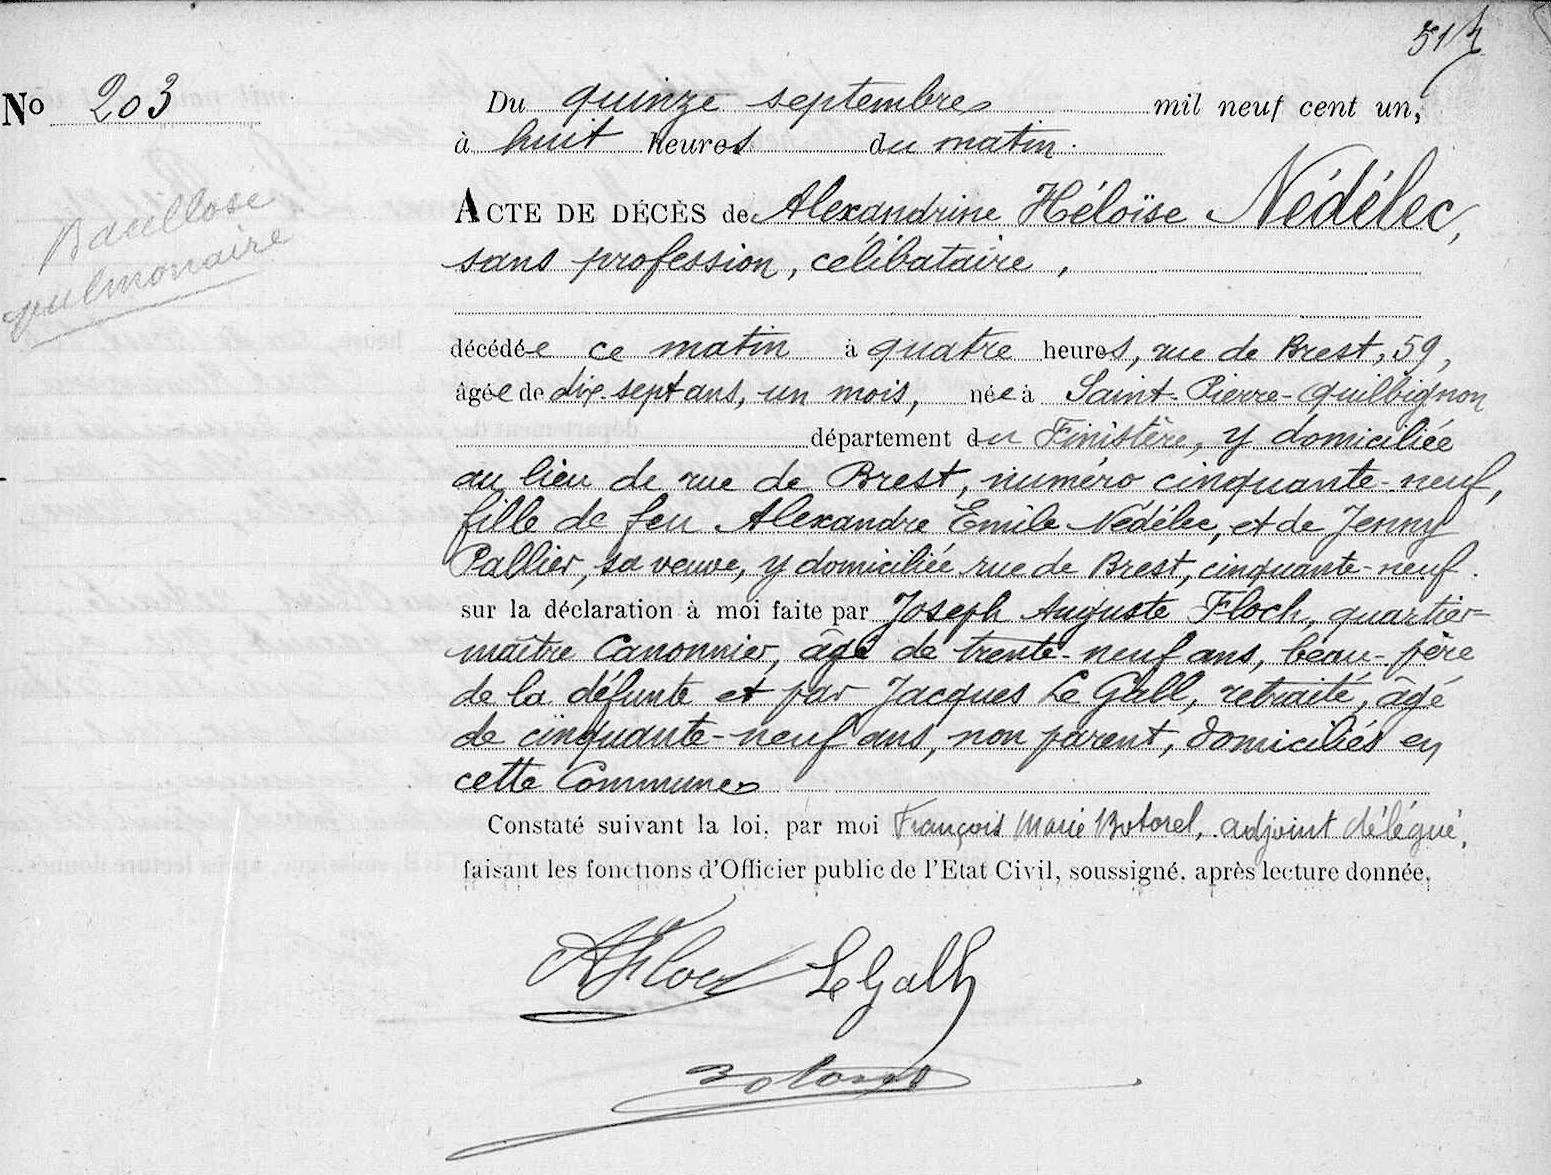 No 203
Bacillose
pulmonaire
Du quinze septembre mil neuf cent un,
à huit heures du matin.
ACTE DE DÉCÈS de Alexandrine Héloïse Nédélec,
sans profession, célibataire,
décédée ce matin à quatre heures, rue de Brest, 59,
âgée de dix-sept ans, un mois, née à Saint-Pierre-Quilbignon
département du Finistère, y domiciliée
au lieu de rue de Brest, numéro cinquante-neuf,
fille de feu Alexandre Emile Nédélec, et de Jenny
Pallier, sa veuve, y domiciliée rue de Brest, cinquante-neuf.
sur la déclaration à moi faite par Joseph Auguste Floch, quartier-
maître Canonnier, âgé de trente-neuf ans, beau-père
de la défunte et par Jacques Le Gall, retraité, âgé
de cinquante-neuf ans, non parent, domiciliés en
cette Commune
Constaté suivant la loi, par moi François Marie Botorel, adjoint délégué,
faisant les fonctions d'Officier public de l'Etat Civil, soussigné, après lecture donnée.
AFloch LeGall
Botorel